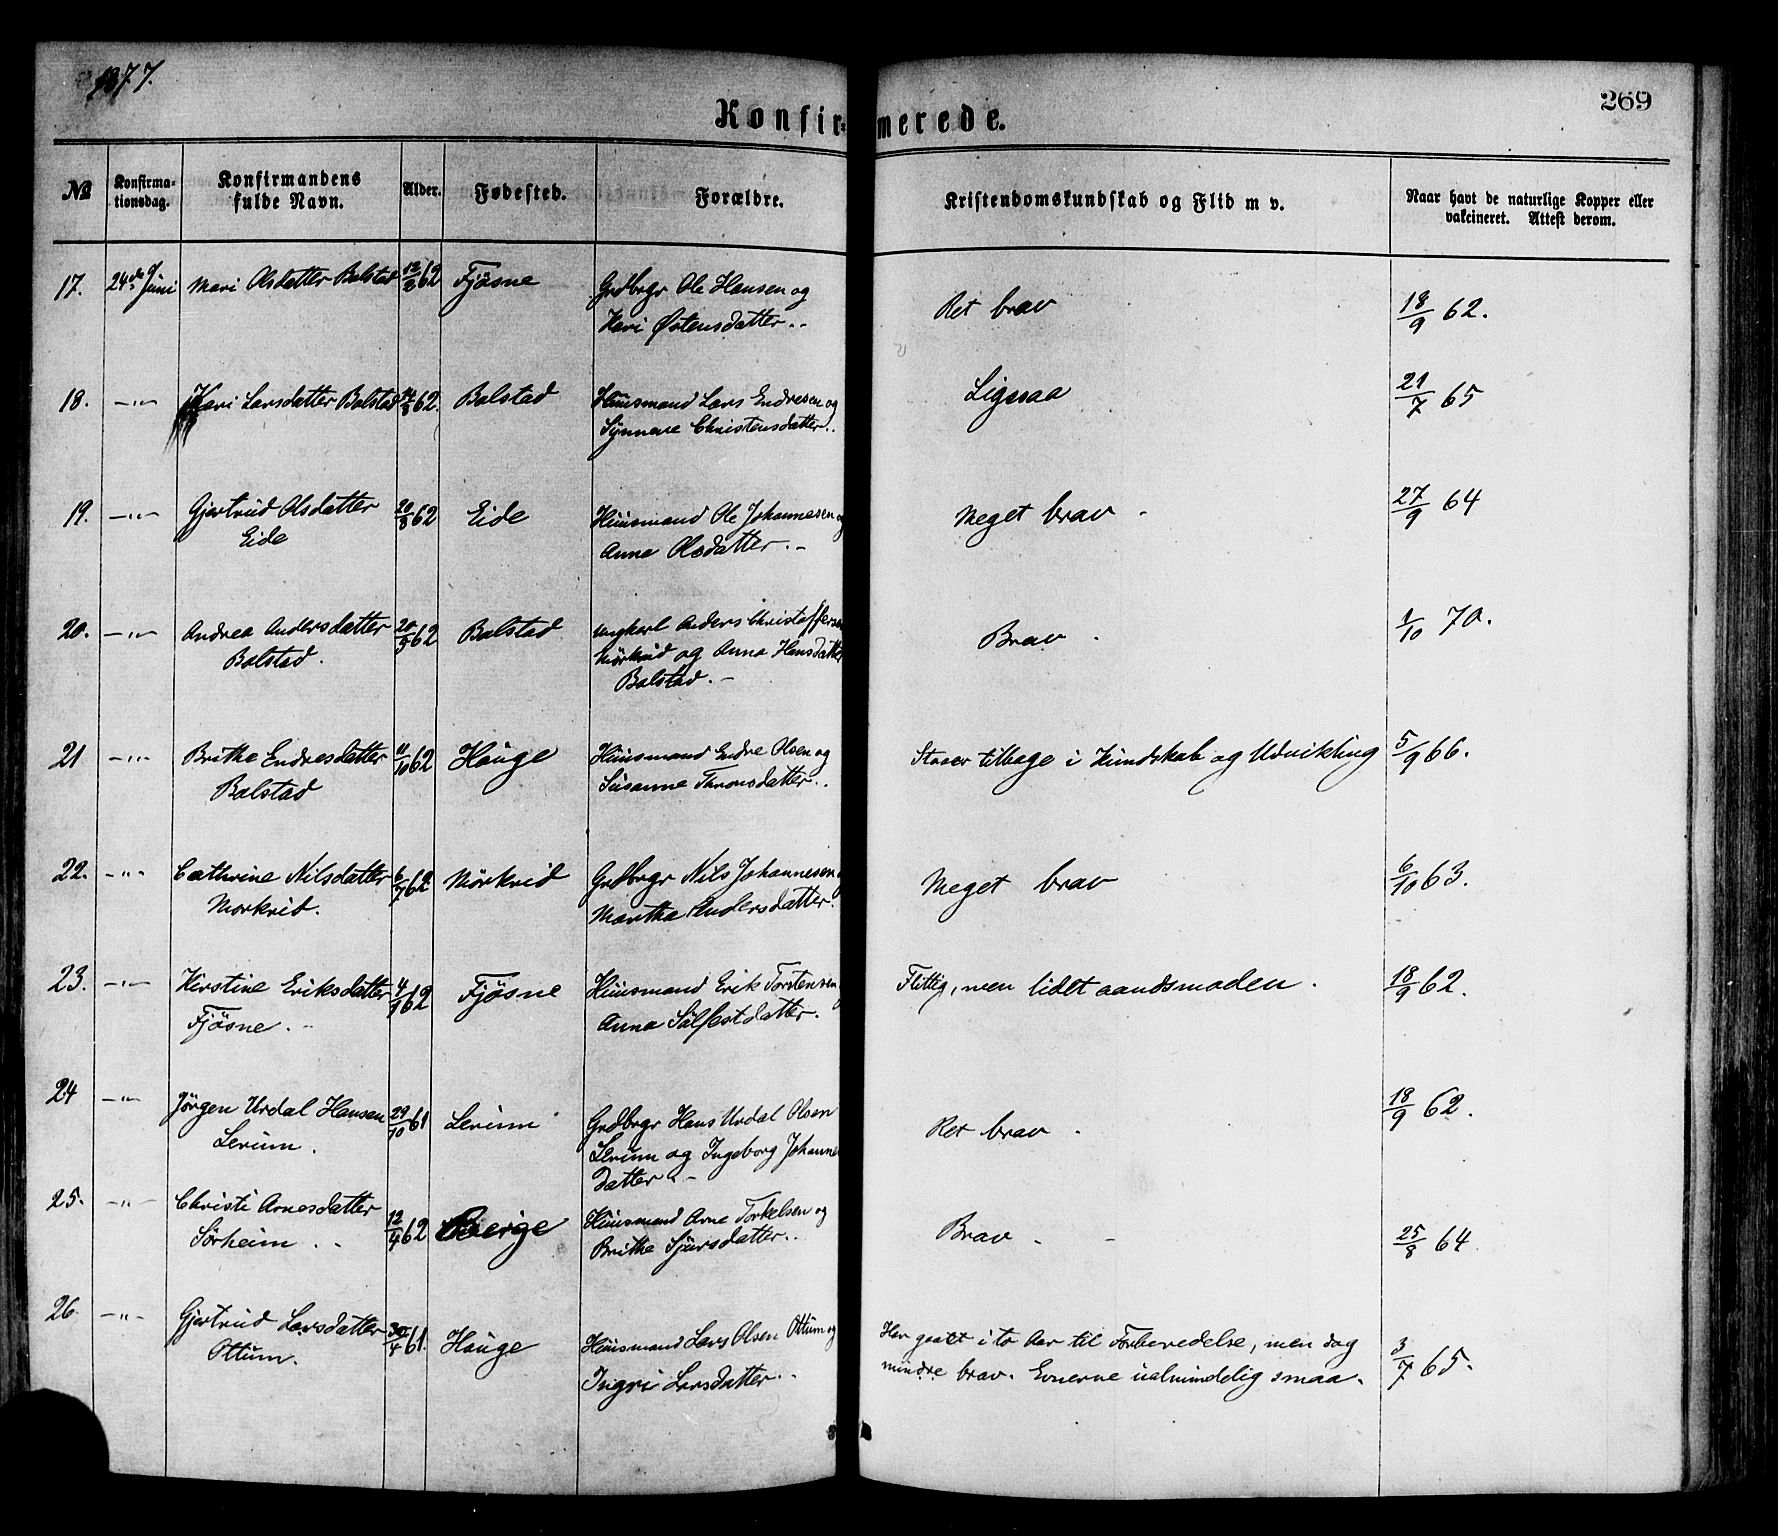 1877.
269
Konfirmerede.
No
Konfirma-
tionsdag.
Konfirmandens
fulde Navn.
Alder.
Fødested.
Forældre.
Kristendomskundskab og Flid m v.
Naar havt de naturlige Kopper eller
vakcineret. Attest derom.
17. 24de Juni Mari Olsdatter Bolstad 12/2 62 Fjøsne Grdbrgr Ole Hansen og Ret brav 18/9 62.
Kari Østensdatter..
18. -"- Kari Larsdatter Bolstad 62. Bolstad Huusmand Lars Endresen og Ligesaa 21/7 65
Synneve Christensdatter..
19. -"- Gjertrud Olsdatter 62 Eide Huusmand Ole Johannesen og Meget brav - 27/9 64
Eide Anna Olsdatter.-
20. -"- Andrea Andersdatter 62 Bolstad Ungkarl Anders Christoffersen Brav. 1/10 70.
Bolstad. Mørkrid og Anna Hansdatter
Bolstad.-
21 -"- Brithe Endresdatter 11/10 62 Hauge Huusmand Endre Olsen og Staaer tilbage i Kundskab og Udvikling 5/9 66.
Bolstad Susanne Thronsdatter..
22. -"- Cathrine Nilsdatter 6/7 62 Mørkrid Grdbrgr Nils Johannesen Meget brav 6/10 63.
Mørkrid. Martha Andersdatter.
23. -"- Kirstine Eriksdatter 62 Fjøsne Huusmand Erik Torstensen Flittig, men lidet aandsmoden. 18/9 62.
Fjøsne.- Anna Sølfestdatter.
24 -"- Jørgen Urdal Hansen 29/10 61 Lerum Grdbrgr Hans Urdal Olsen Ret brav. 18/9 62.
Lerum. Lerum og Ingeborg Johanne
datter.-
25. -"- Christi Arnesdatter 12/4 62 Berge Huusmand Arne Torkelsen og Brav. - 25/8 64
Sørheim.. Brithe Sjursdatter..
26. -"- Gjertrud Larsdatter 30/4 61. Hauge Huusmand Lars Olsen Ottum og Har gaaet i to Aar til Forberedelse, men dog 3/7 65.
Ottum. Ingri Larsdatter.. mindre brav. Evnerne ualmindelig smaa.